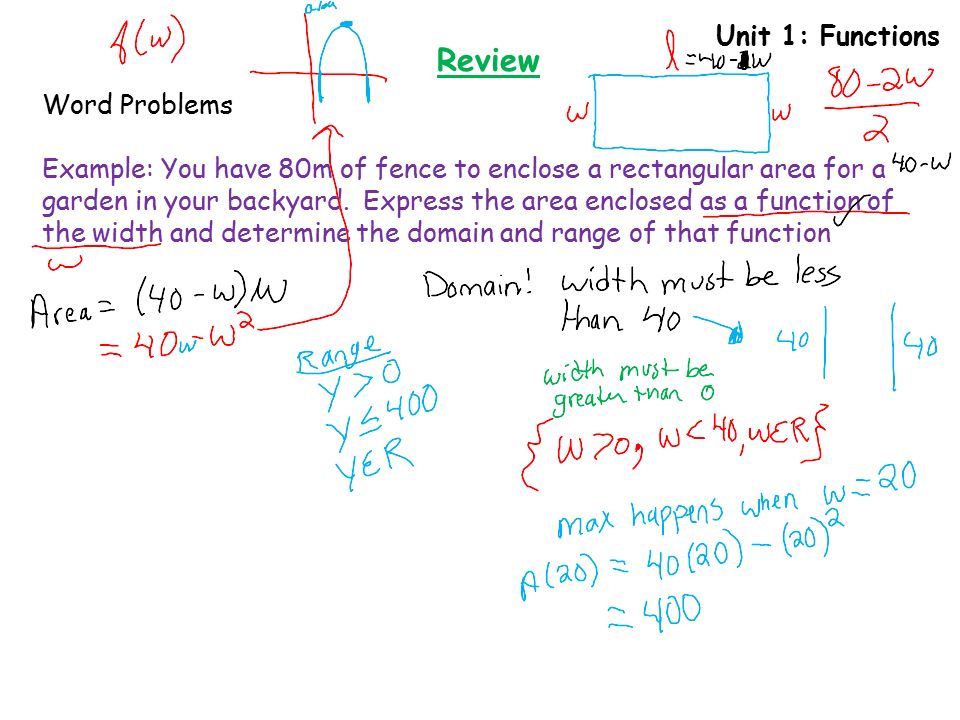 Unit 1: Functions
Review
f(w)
area
l = 40 - w
w
w
80-2w
2
40-w
Word Problems
Example: You have 80m of fence to enclose a rectangular area for a
garden in your backyard. Express the area enclosed as a function of
the width and determine the domain and range of that function
w
Area = (40-w)w
= 40w-w²
Domain! width must be less
than 40
40
40
width must be
greater than 0
{w>0, w<40, wER}
Range
y > 0
y ≤ 400
yER
max happens when w = 20
A(20) = 40(20) - (20)²
= 400